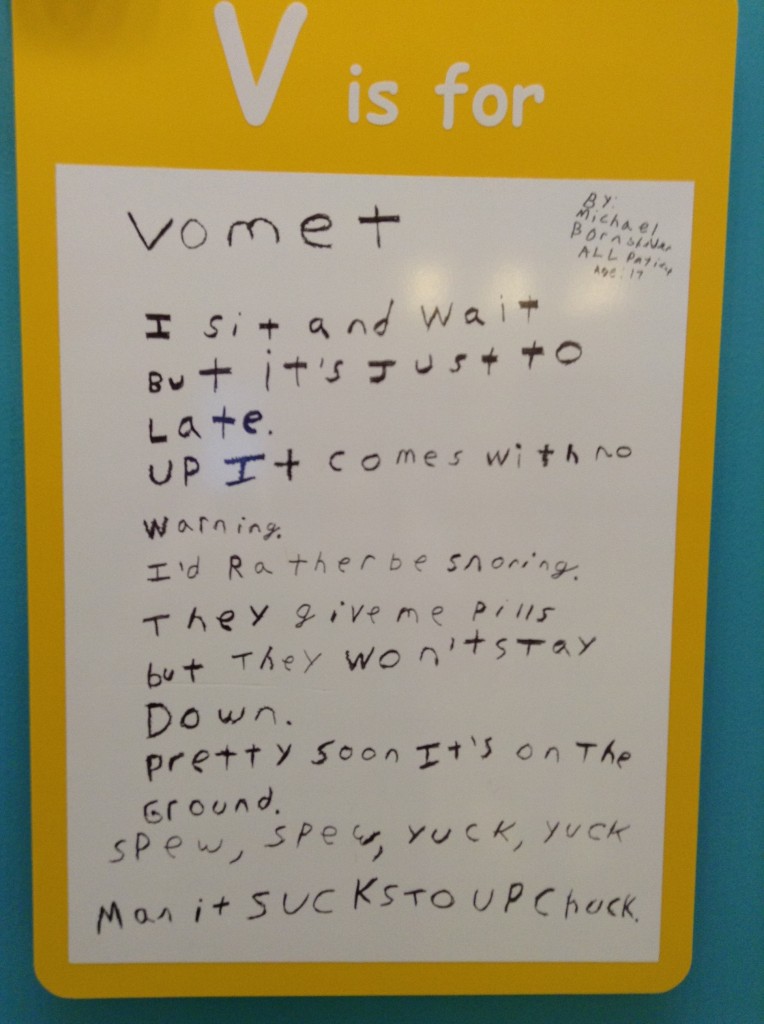 V is for
vomet
BY:
Michael
ALL Patient
Age: 17
I sit and wait
But it's Just to
Late.
UP It comes with no
warning.
I'd Rather be snoring.
They give me pills
but They won't STay
Down.
pretty soon It's on The
Ground.
spew, spew, yuck, yuck
Man it SUCKS TO UPChuck.